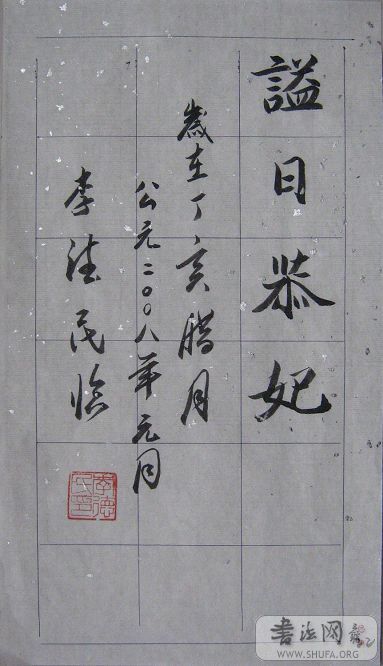 謚曰恭妃
歲在丁亥腊月
公元二〇〇八年元月
李德民临
李德民印
书法网
WWW.SHUFA.ORG